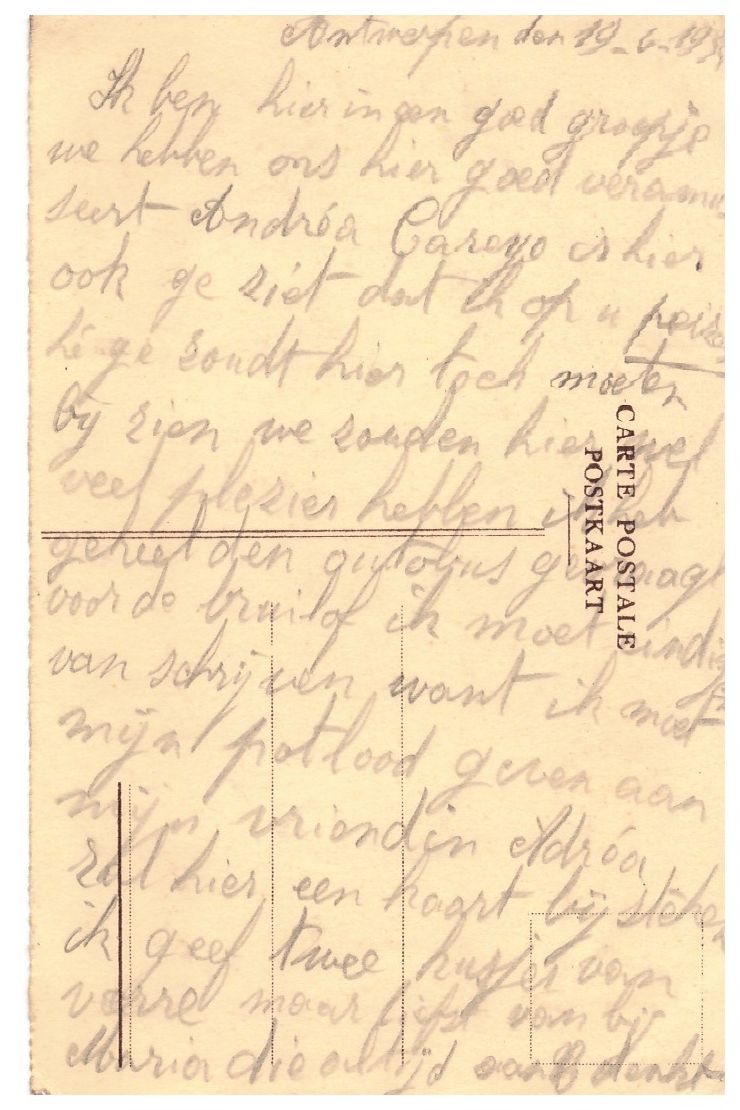 Antwerpen den 19-6-193
Ik ben hier in een goed groepje
we hebben ons hier goed veramu
seert Andréa Careyo is hier
ook ge ziét dat ik op u peize
hé ge zoudt hier toch moeten
bÿ zien we zouden hier wel
veel plezier hebben ik heb
geheel den autobus gevraagt
voor de bruilof ik moet eindig
van schrÿven want ik moet
mÿn potlood geven aan
mÿn vriendin Adréa
zal hier een kaart bÿ stéken
ik geef twee kusjes van
verre maar liefst van bÿ
Maria die altÿd aan U denkt
CARTE POSTALE
POSTKAART